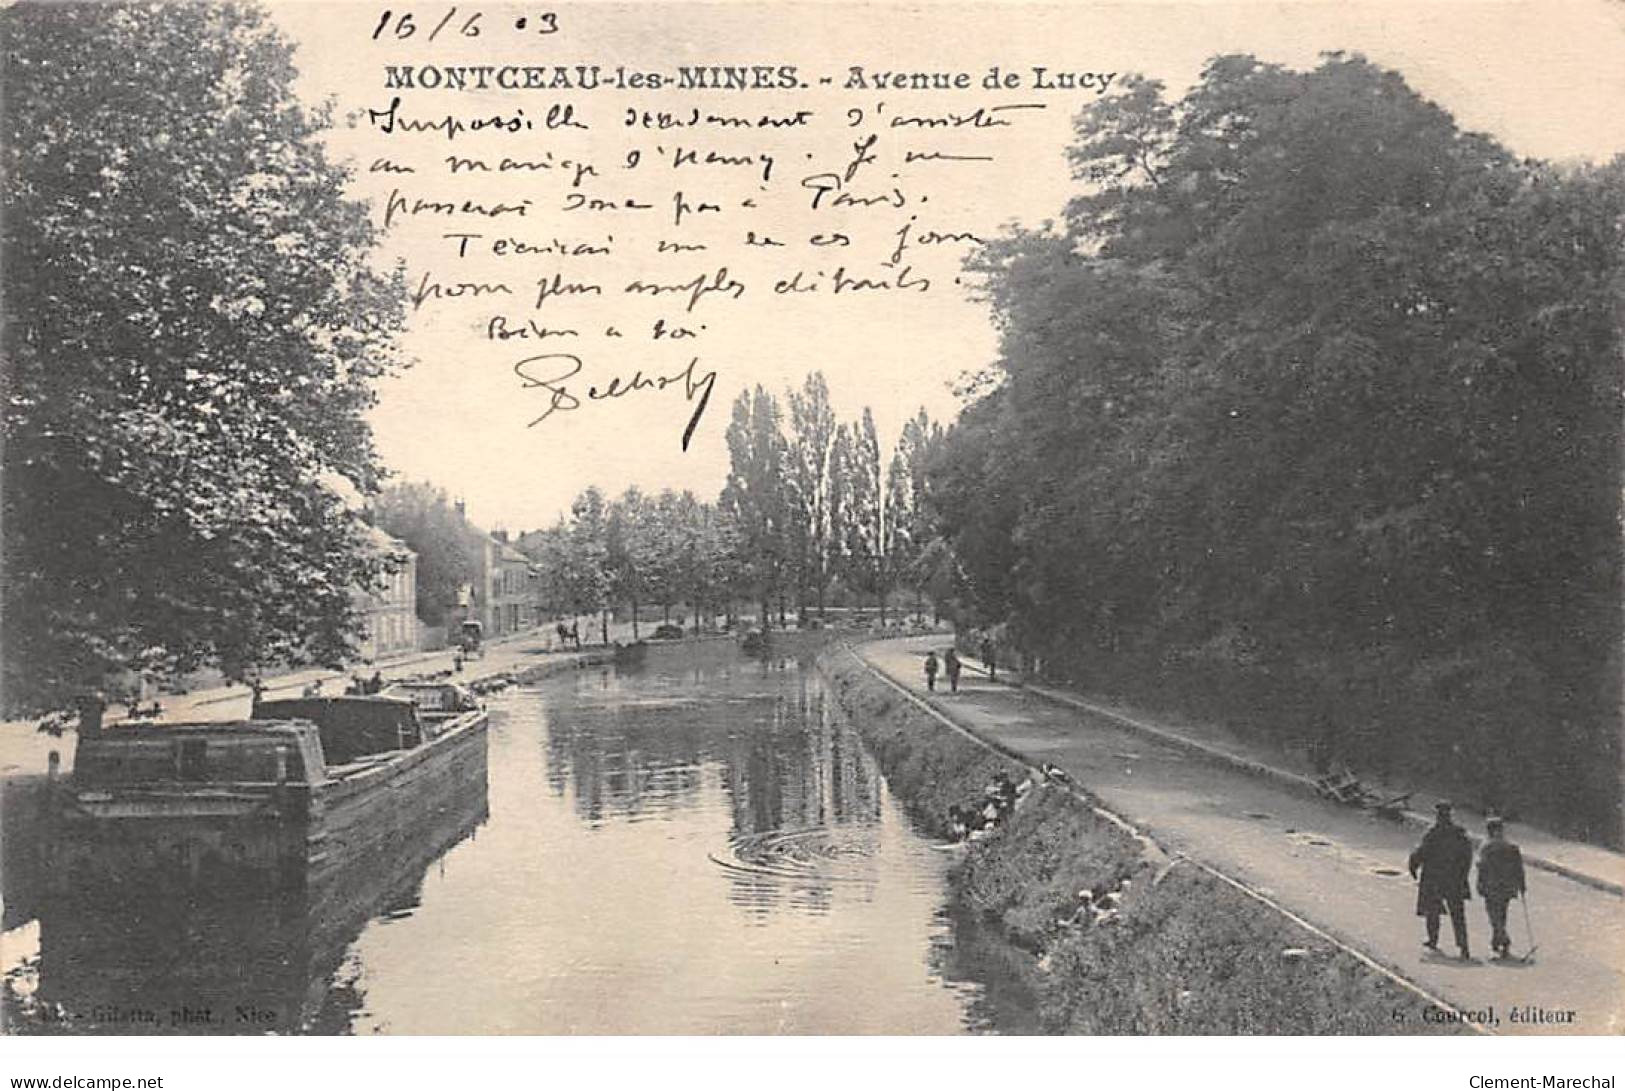 16/6 03
MONTCEAU-les-MINES. - Avenue de Lucy
Impossible seulement d'assister
au mariage d'Henry. Je ne
passerai donc pas à Paris.
T'écrirai un de ces jours
pour plus amples détails.
Bien à toi
43. - Giletta, phot., Nice
G. Courcol, éditeur
delcampe.net
Clement-Marechal